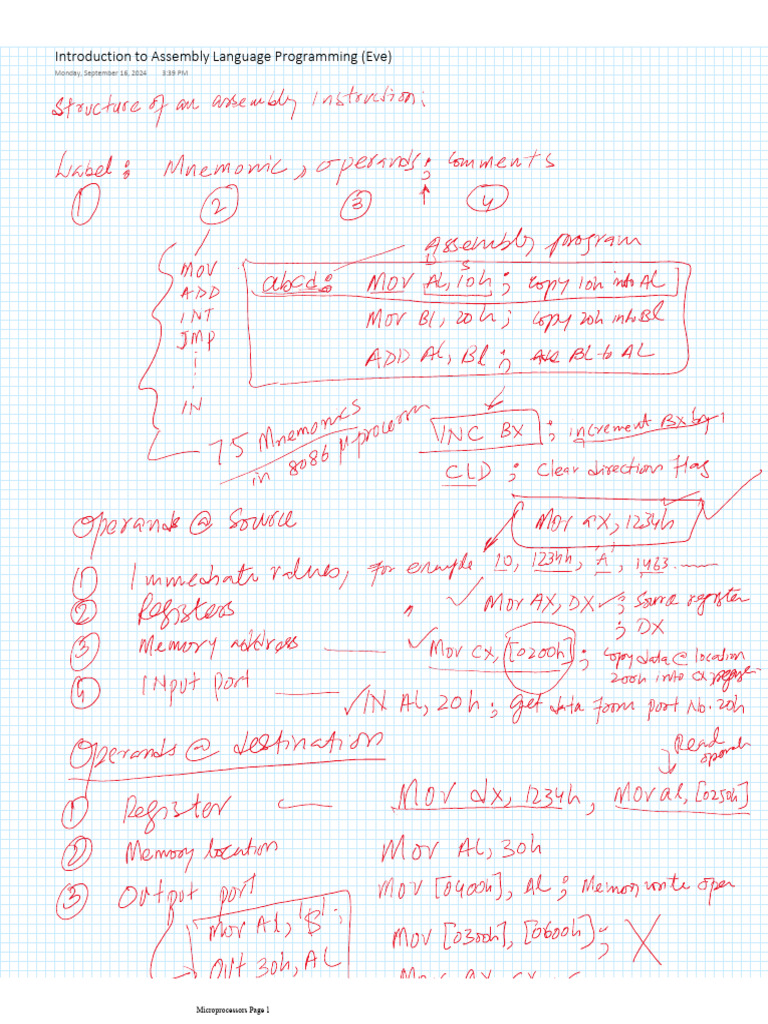 Introduction to Assembly Language Programming (Eve)
Monday, September 16, 2024 3:39 PM
Structure of an assembly Instruction:
Label: Mnemonic, operands; comments
1 2 3 4
Assembly program
MOV
ADD
INT
JMP
IN
abcd: MOV AL, 10h; copy 10h into AL
MOV Bl, 20h; copy 20h into Bl
ADD AL, Bl; BL to AL
75 Mnemonics
in 8086 μprocessor
INC BX; increment BX by 1
CLD; Clear direction flag
Operands @ Source
Mov ax, 1234h
1 Immediate values, for example 10, 1234h, 'A', 1463......
2 Registers
Mov AX, DX; Source register
; DX
3 Memory address
Mov CX, [0200h]; copy data @ location
200h into cx
4 Input port
IN AL, 20h; Get data from port No. 20h
Operands @ destination
Read
1 Register
Mov dx, 1234h, Mov al, [0250h]
2 Memory location
Mov AL, 30h
3 Output port
Mov [0400h], AL; Memory write oper
Mov Al, '$';
Mov [0300h], [0600h]; X
Out 30h, AL
Microprocessors Page 1